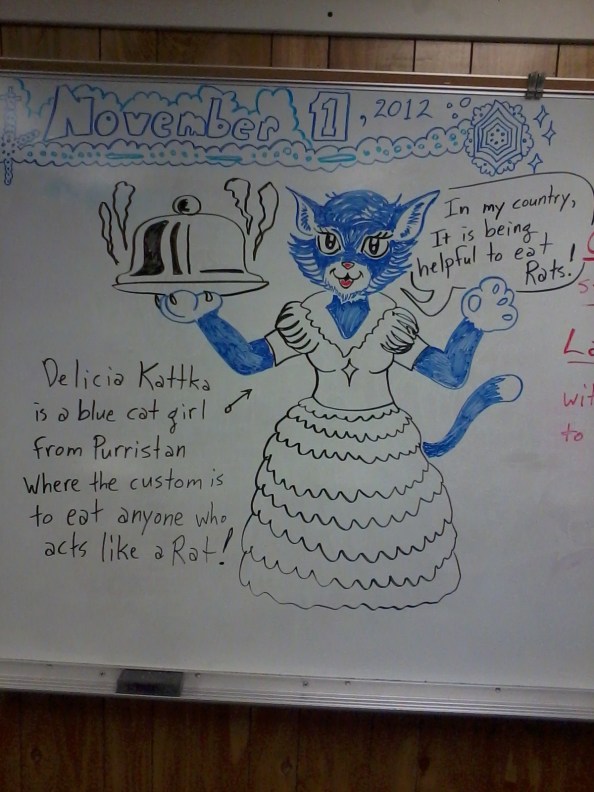 November 1, 2012
In my country,
It is being
helpful to eat
Rats!
Delicia Kattka
is a blue cat girl
from Purristan
Where the custom is
to eat anyone who
acts like a Rat!
La
wit
to